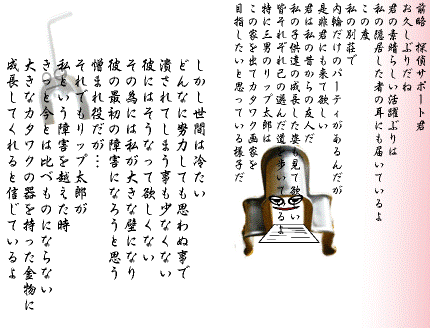 前略　探偵サポート君
お久しぶりだね
君の素晴らしい活躍ぶりは
私の隠居した者の耳にも届いているよ
この度
私の別荘で
内輪だけのパーティがあるんだが
是非君にも来て欲しい
君は私の昔からの友人だ
私の子供達の成長した姿も見て欲しい
皆それぞれ己の選んだ道を歩いているよ
特に三男のリップ太郎は
この家を出てカタワク画家を
目指したいと思っている様子だ
しかし世間は冷たい
どんなに努力しても思わぬ事で
潰されてしまう事も少なくない
彼にはそうなって欲しくない
その為には私が大きな壁になり
彼の最初の障害になろうと思う
憎まれ役だが…
それでもリップ太郎が
私という障害を越えた時
きっと今とは比べものにならない
大きなカタワクの器を持った金物に
成長してくれると信じているよ